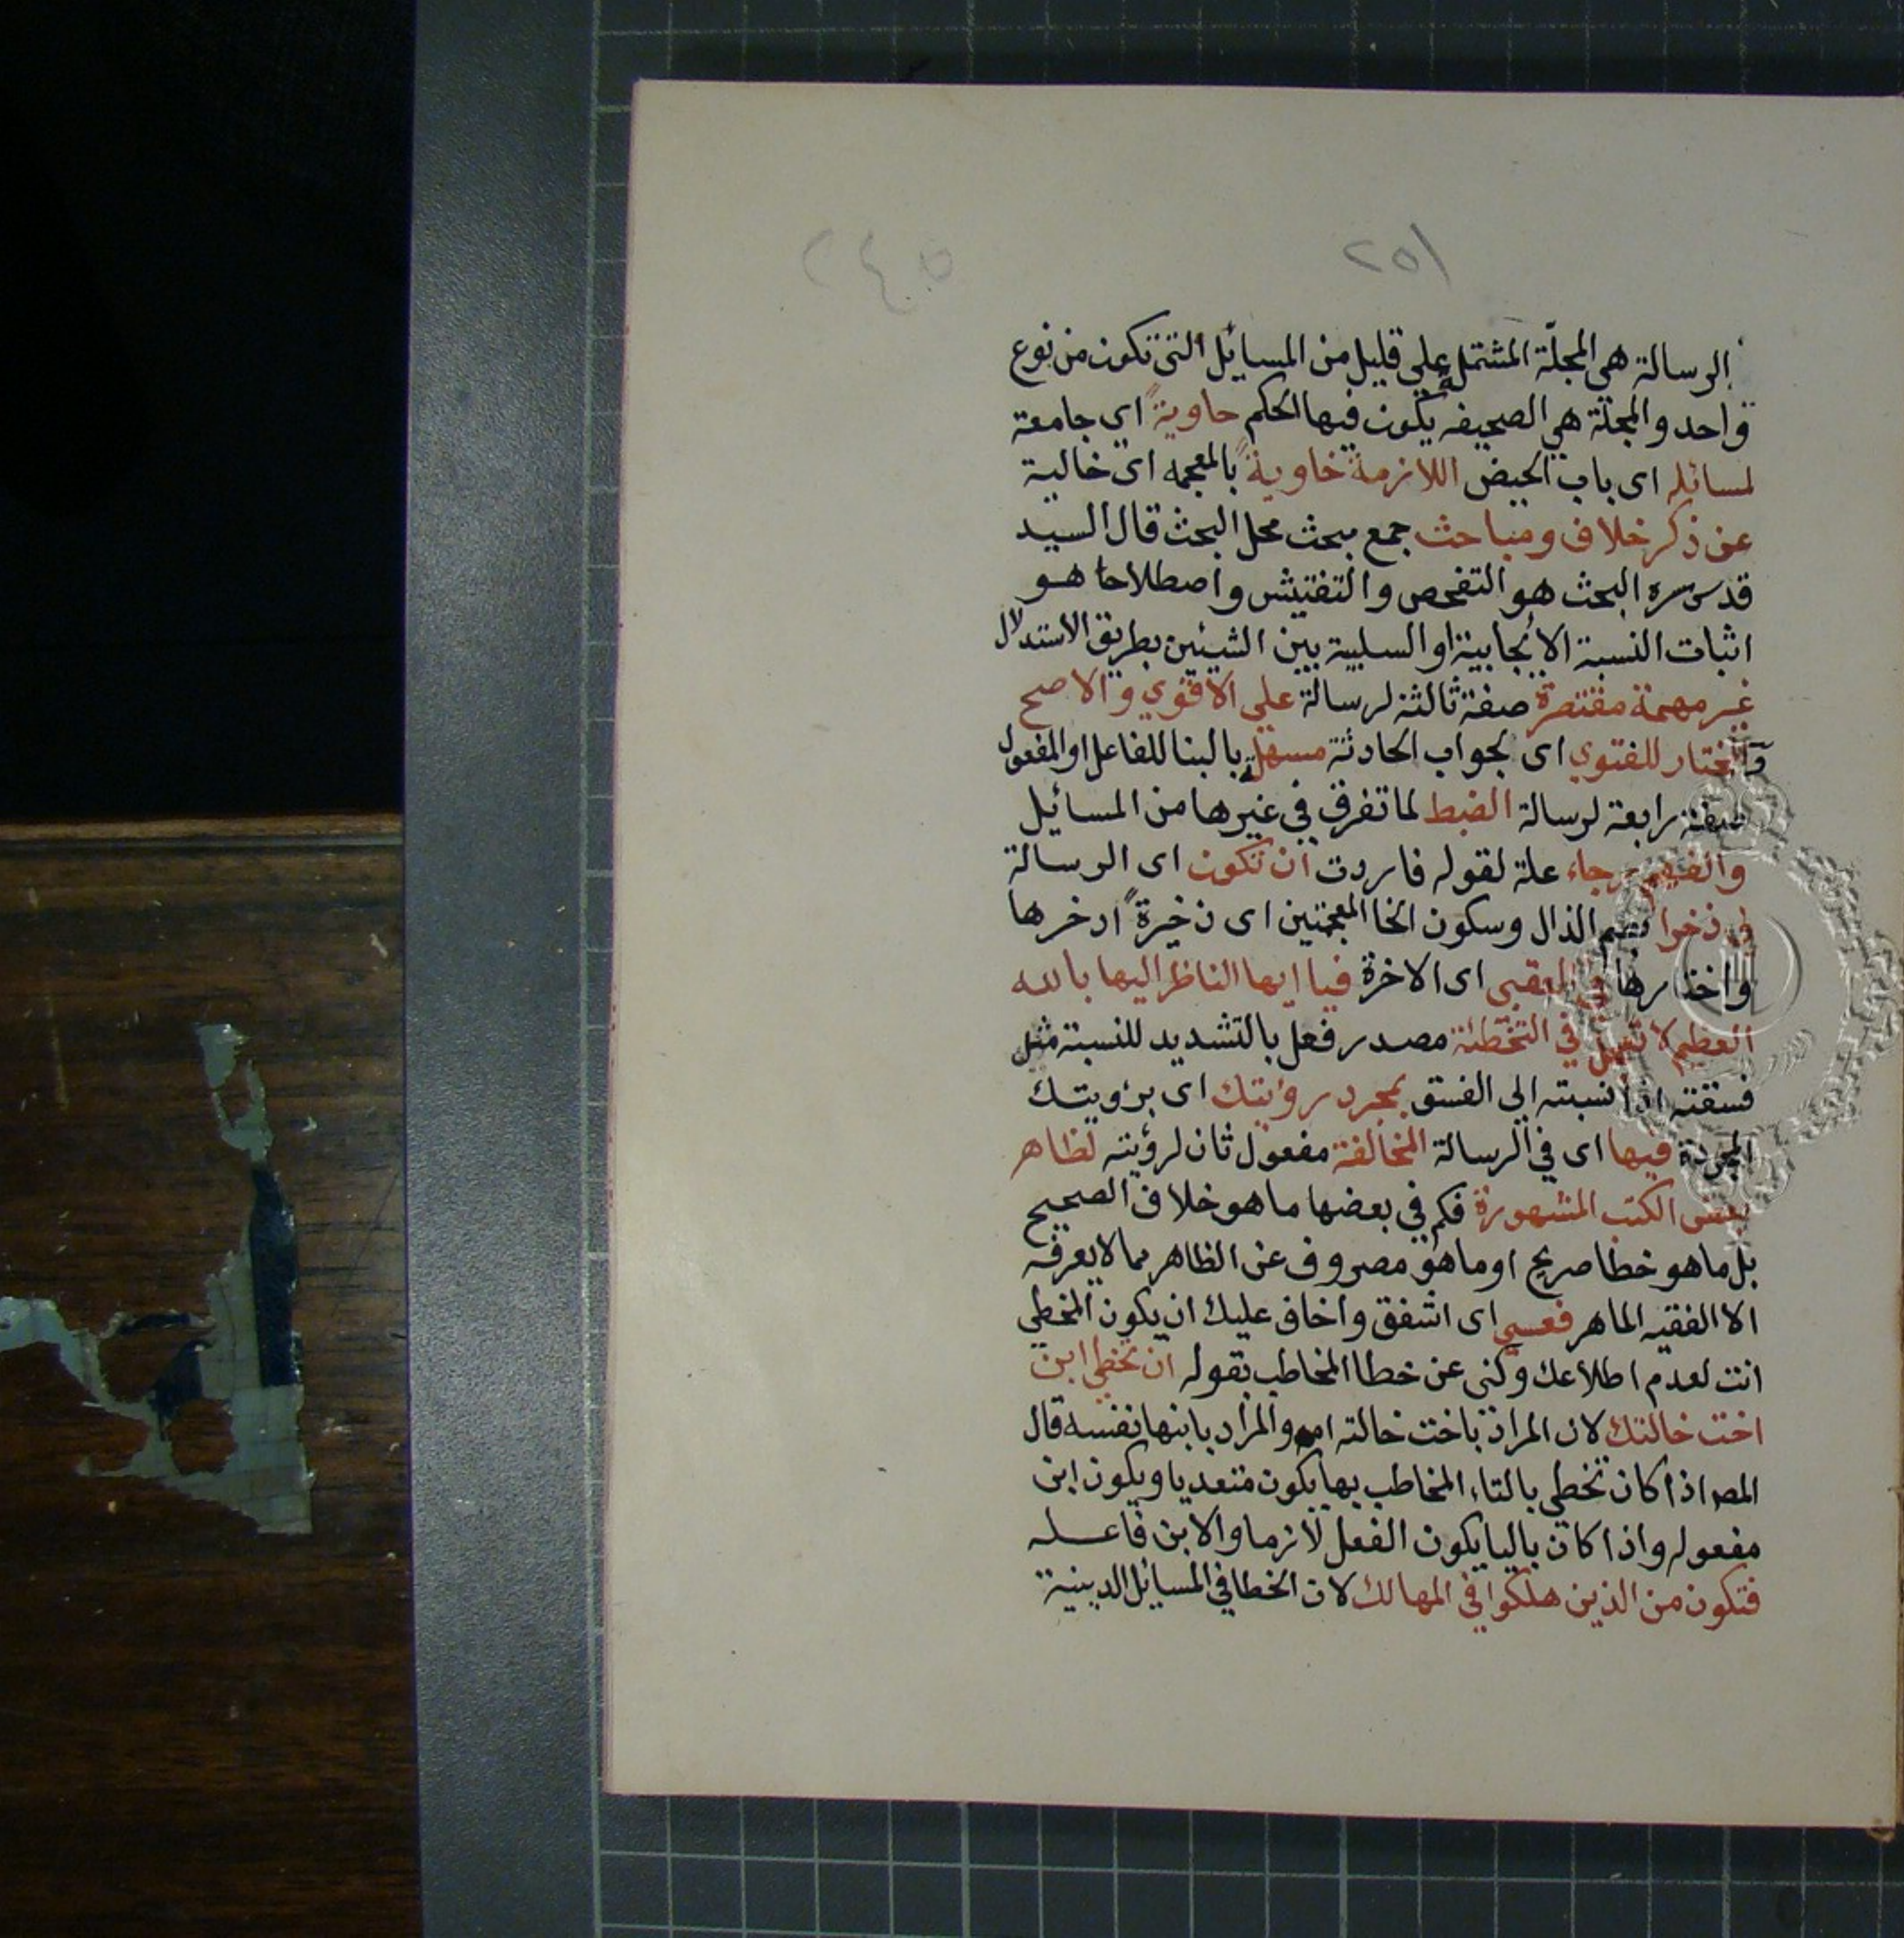 ٢٥١ ٢٤٥
الرسالة هي المجلّة المشتملة علي قليل من المسائل التي تكون من نوع
واحد والمجلة هي الصحيفه يكون فيها الحكم حاويةً اي جامعة
لمسائله اى باب الحيض اللازمة خاويةً بالمعجمه اى خالية
عن ذكر خلاف ومباحث جمع مبحث محل البحث قال السيد
قدس سره البحث هو التفحص والتفتيش واصطلاحا هو
اثبات النسبة الايجابية او السلبية بين الشيئين بطريق الاستدلال
غير مهمة مقتصرة صفة ثالثة لرسالة علي الاقوي والاصح
والمختار للفتوي اى لجواب الحادثة مسهلة بالبنا للفاعل او المفعول
صفة رابعة لرسالة الضبط لما تفرق في غيرها من المسائل
والفهم رجاء علة لقوله فاردت ان تكون اى الرسالة
لي ذخرا بضم الذال وسكون الخا المعجمتين اى ذخيرةً ادخرها
واختارها في العقبي اى الاخرة فيا ايها الناظر اليها بالله
العظيم لا تعجل في التخطئة مصدر فعل بالتشديد للنسبة مثل
فسقته اذا نسبته الى الفسق بمجرد رؤيتك اى برؤيتك
المجردة فيها اى في الرسالة المخالفة مفعول ثان لرؤيته لظاهر
بعض الكتب المشهورة فكم في بعضها ما هو خلاف الصحيح
بل ما هو خطا صريح او ما هو مصروف عن الظاهر مما لا يعرفه
الا الفقيه الماهر فعسي اى اشفق واخاف عليك ان يكون المخطي
انت لعدم اطلاعك وكنى عن خطا المخاطب بقوله ان تخطي ابن
اخت خالتك لان المراد باخت خالته امه والمراد بابنها نفسه قال
المصـ اذا كان تخطي بالتاء المخاطب بها يكون متعديا ويكون ابن
مفعوله واذا كان باليا يكون الفعل لازما والابن فاعله
فتكون من الذين هلكوا في المهالك لان الخطا في المسائل الدينية